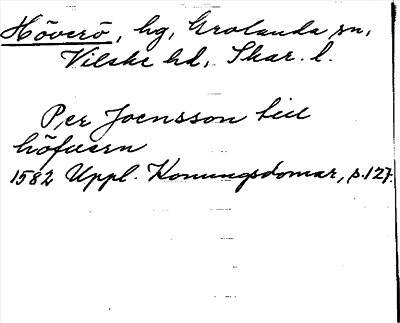 Höverö, hg, Grolanda sn,
Vilske hd, Skar. l.
Per Joensson till
höfuern
1582 Uppl. Konungsdomar, s. 127.